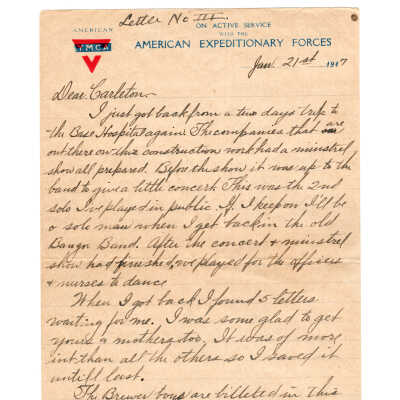 Letter No III.
AMERICAN
YMCA
ON ACTIVE SERVICE
WITH THE
AMERICAN EXPEDITIONARY FORCES
Jan. 21st 1917
Dear Carleton,-
I just got back from a two days trip to
the Base Hospital again. The companies that are
out there on this construction work had a minstrel
show all prepared. Before the show it was up to the
band to give a little concert. This was the 2nd
solo I've played in public. If I keep on I'll be
a solo man when I get back in the old
Bangor Band. After the concert & minstrel
show had finished, we played for the officers
& nurses to dance
When I got back I found 5 letters
waiting for me. I was some glad to get
yours & mothers too. It was of more
int. than all the others so I saved it
untill last.
The Brewer boys are billeted in this